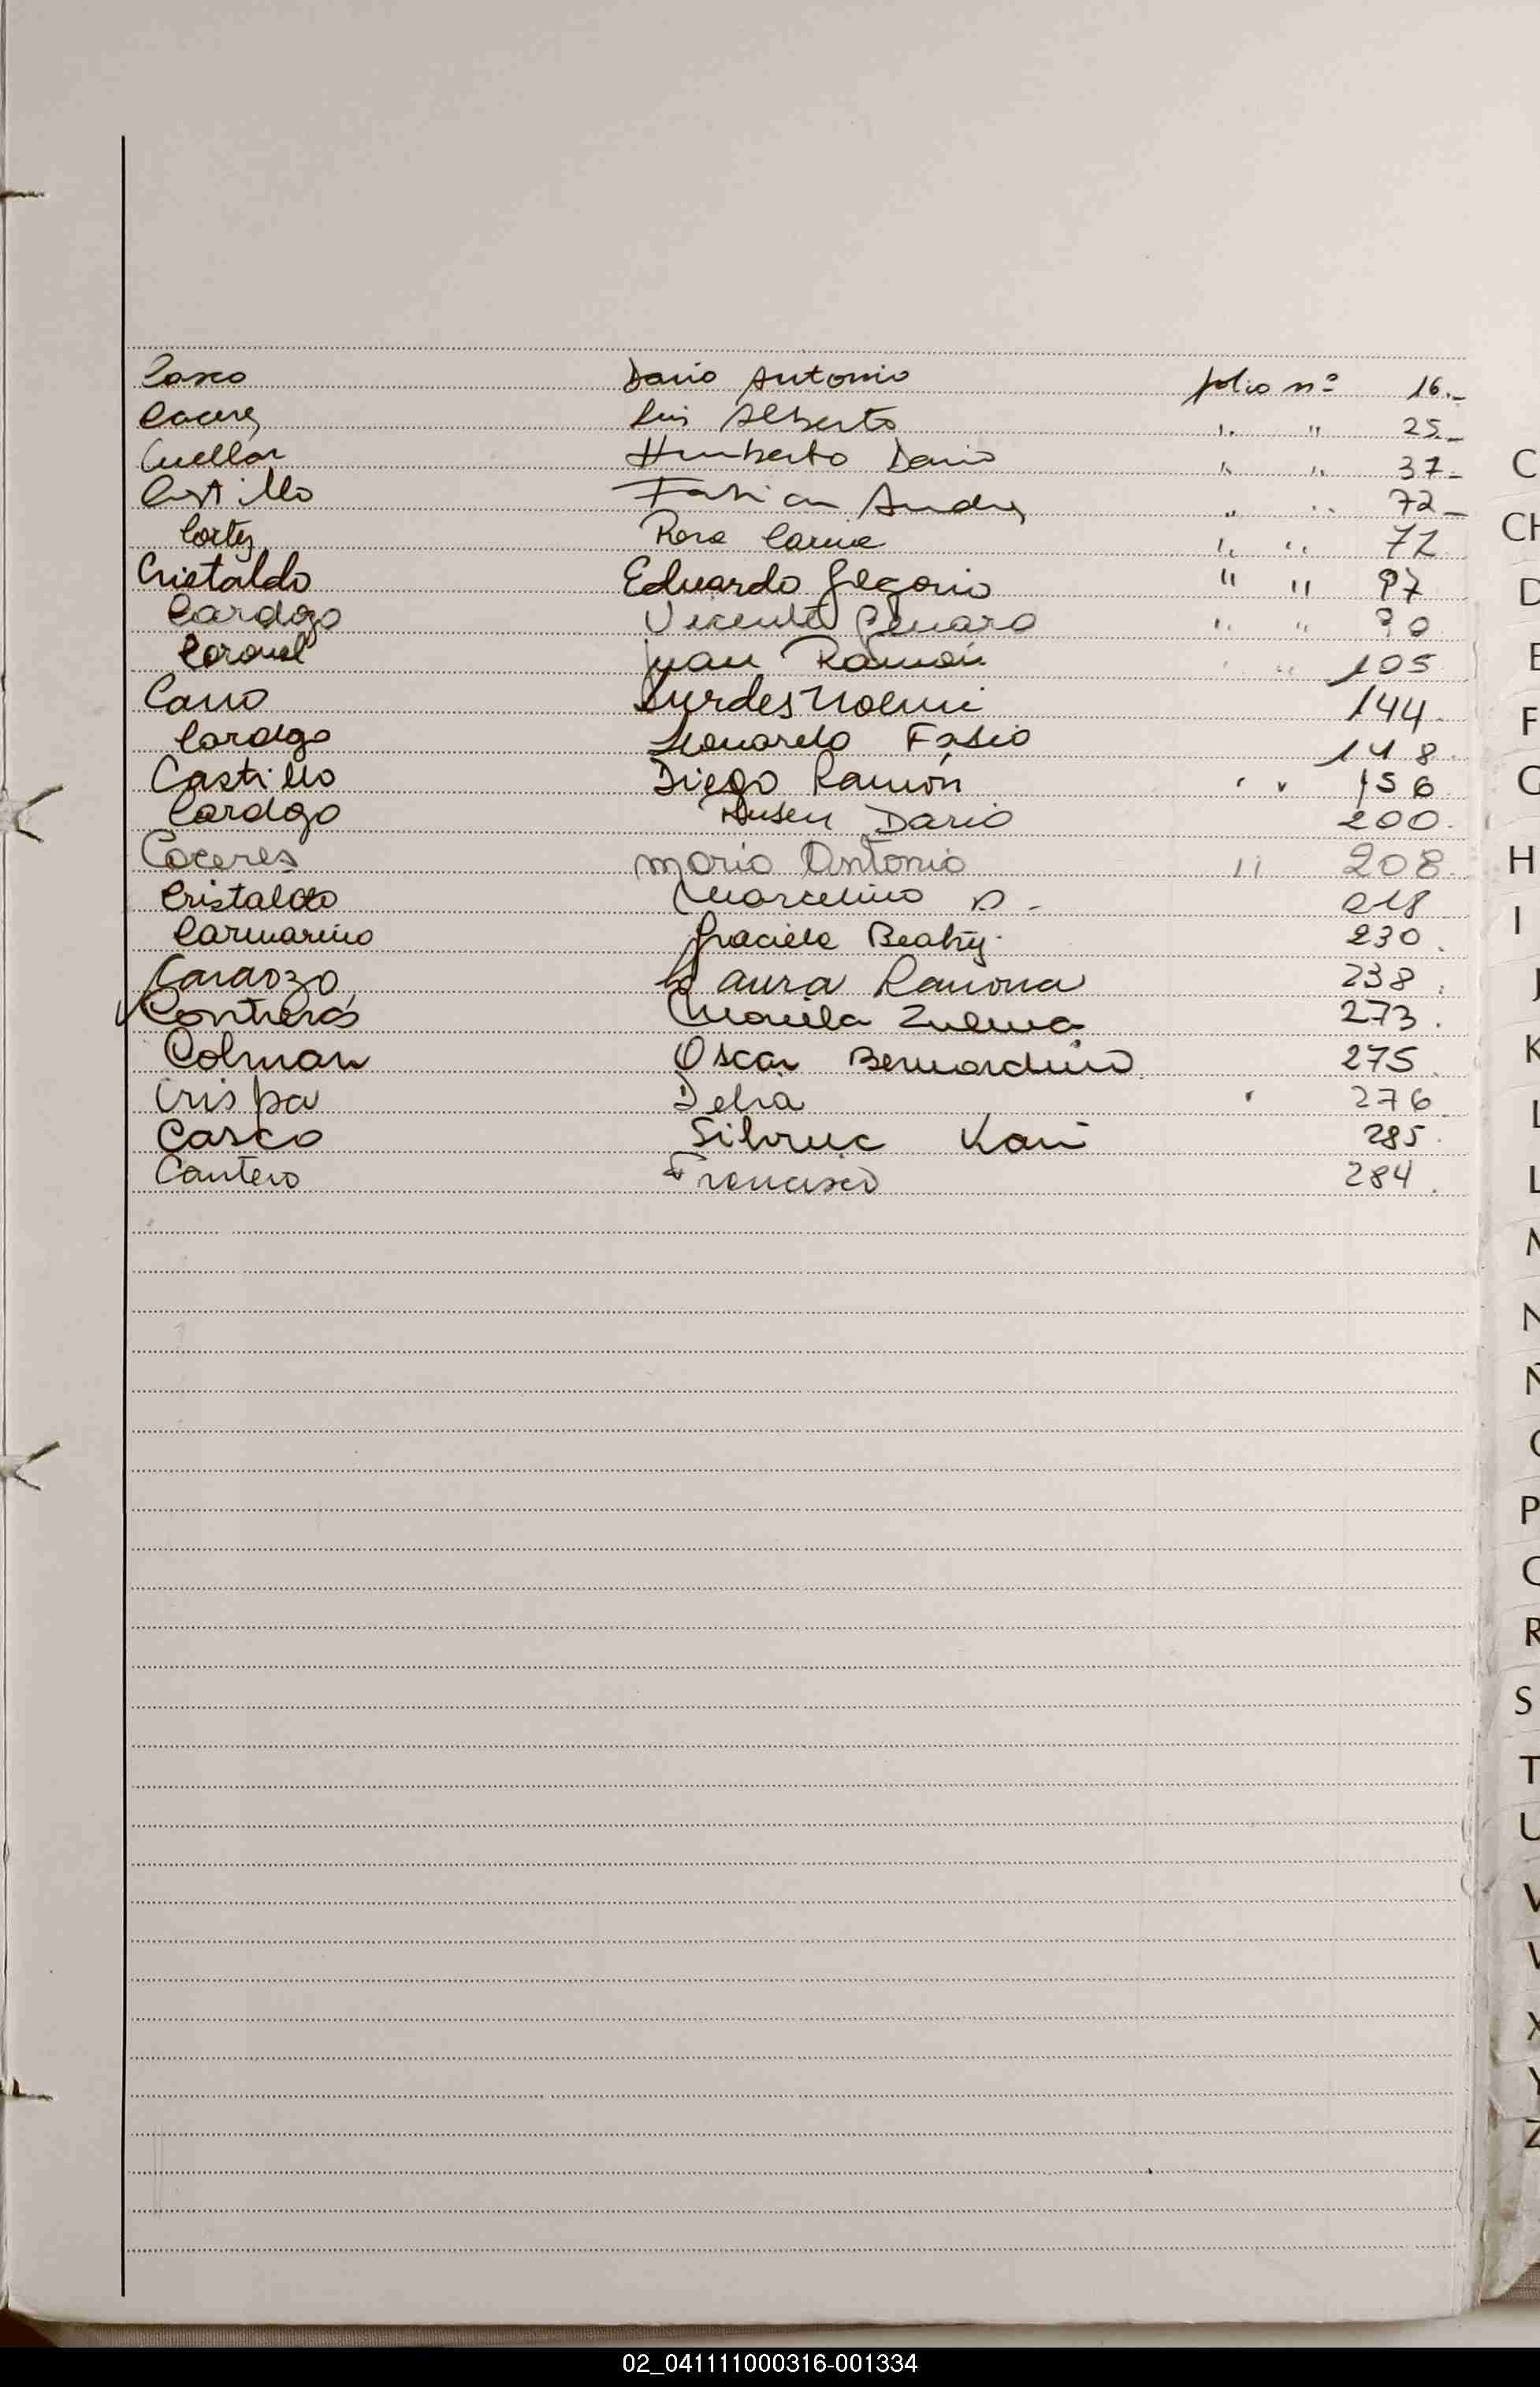 Casco Dario Antonio folio nº 16.-
Caceres Luis Alberto " " 25.-
Cuellar Humberto Dario " " 37-
Castillo Fabian Andres " " 72-
Cortez Rosa Carina " " 71
Cristaldo Eduardo Gregorio " " 97
Cardozo Vicente Genaro " " 90
Coronel Juan Ramón " " 105
Cano Lurdes Noemi 144
Cardozo Leonardo Fabio 148
Castillo Diego Ramón " " 156
Cardozo Ruben Dario 200
Caceres mario Antonio " 208
Cristaldo Marcelino 218
Carmarino Graciela Beatriz 230.
Cardozo Laura Ramona 238
Contreras Mariela Zulema 273.
Colman Oscar Bernardino 275
Crispa Delia 276
Casco Silvina Kari 285
Cantero Francisco 284.
C
CH
D
E
F
G
H
I
J
K
L
L
M
N
Ñ
O
P
Q
R
S
T
U
V
X
Y
Z
02_041111000316-001334